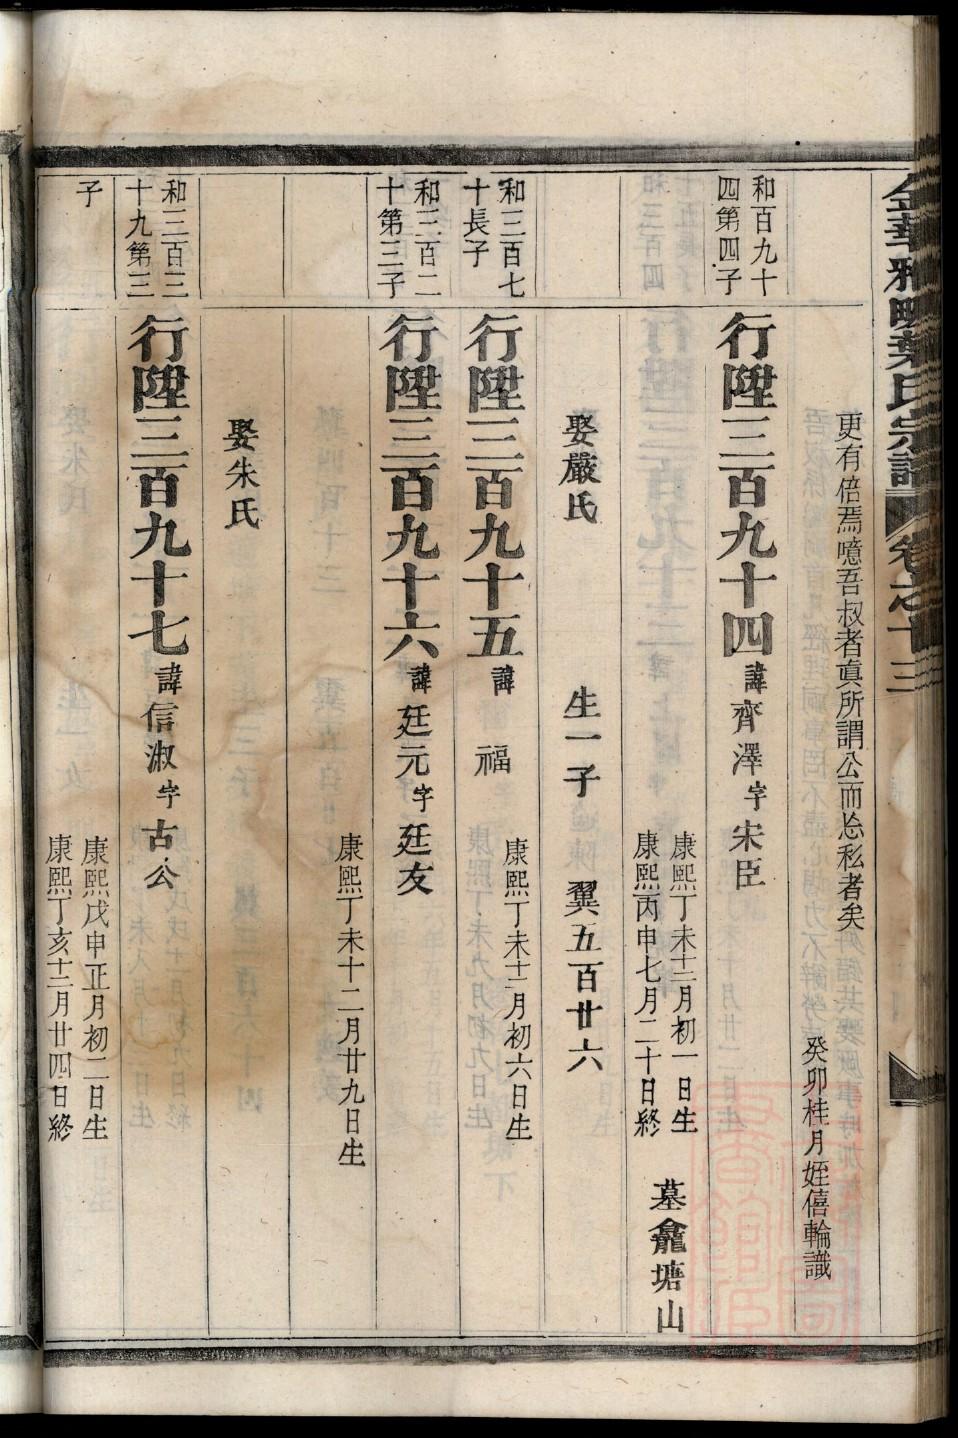 金華雅畈葉氏宗譜 卷之十三
更有倍焉噫吾叔者眞所謂公而忘私者矣
癸卯桂月姪僖輪識
和百九十
四第四子
行陞三百九十四諱齊澤字宋臣
康熙丁未十二月初一日生
康熙丙申七月二十日終
墓龕塘山
娶嚴氏 生一子 翼五百廿六
和三百七
十長子
行陞三百九十五諱 福
康熙丁未十二月初六日生
和三百二
十第三子
行陞三百九十六諱廷元字廷友
康熙丁未十二月廿九日生
娶朱氏
和三百三
十九第三
子
行陞三百九十七諱信淑字古公
康熙戊申正月初二日生
康熙丁亥十二月廿四日終